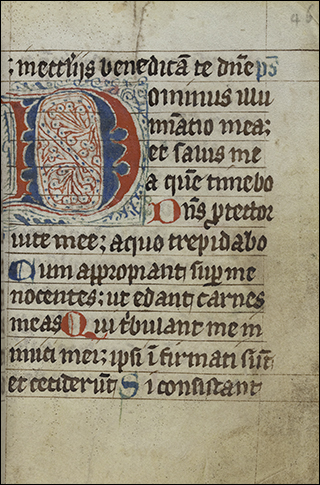 ; in ecctijs benedicā te dn̄e ps̄
Dominus illu
mīatio mea;
et salus me
a quē timebo
Dn̄s ꝓtector
uite mee; aquo trepidabo
Cum appropiant suꝑ me
nocentes: ut edant carnes
meas Qui tͥbulant me in
imici mei; ipsi ī firmati sūt
et ceciderūt Si consistant